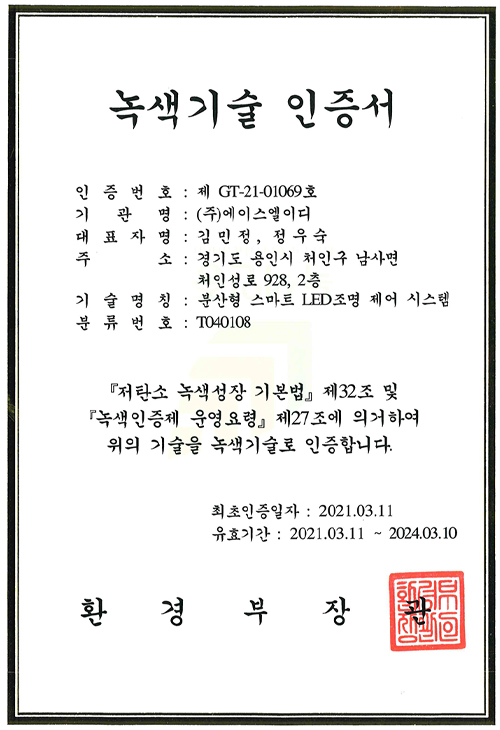 녹색기술 인증서
인 증 번 호 : 제 GT-21-01069호
기 관 명 : (주)에이스엘이디
대 표 자 명 : 김민정, 정우숙
주 소 : 경기도 용인시 처인구 남사면
처인성로 928, 2층
기 술 명 칭 : 분산형 스마트 LED조명 제어 시스템
분 류 번 호 : T040108
『저탄소 녹색성장 기본법』 제32조 및
『녹색인증제 운영요령』 제27조에 의거하여
위의 기술을 녹색기술로 인증합니다.
최초인증일자 : 2021.03.11
유효기간 : 2021.03.11 ~ 2024.03.10
환 경 부 장 관